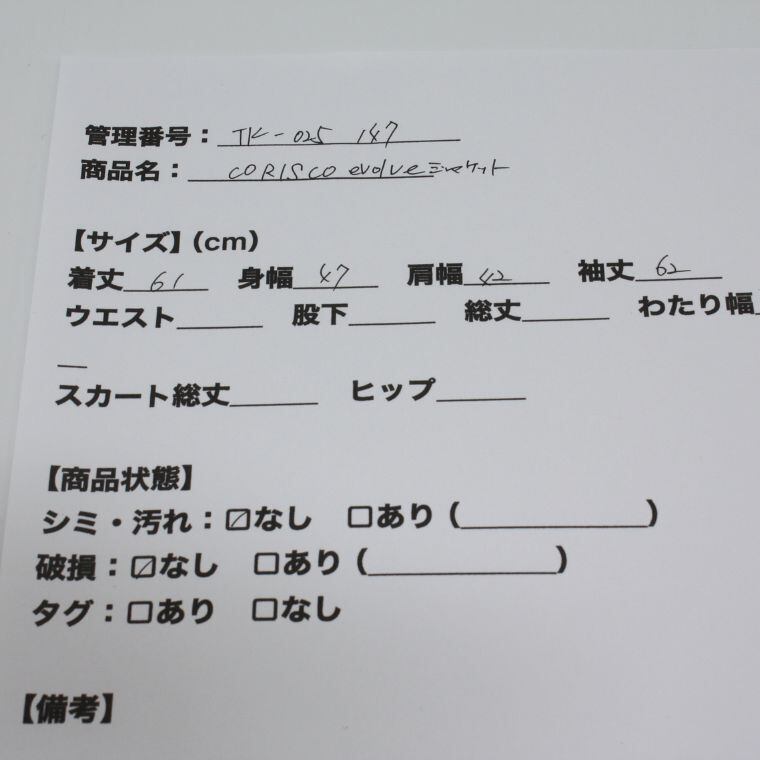 管理番号：TK-025 147
商品名：CORISCO evolveジャケット
【サイズ】(cm)
着丈 61 身幅 47 肩幅 42 袖丈 62
ウエスト 股下 総丈 わたり幅
スカート総丈 ヒップ
【商品状態】
シミ・汚れ：☑なし □あり ( )
破損：☑なし □あり ( )
タグ：□あり □なし
【備考】